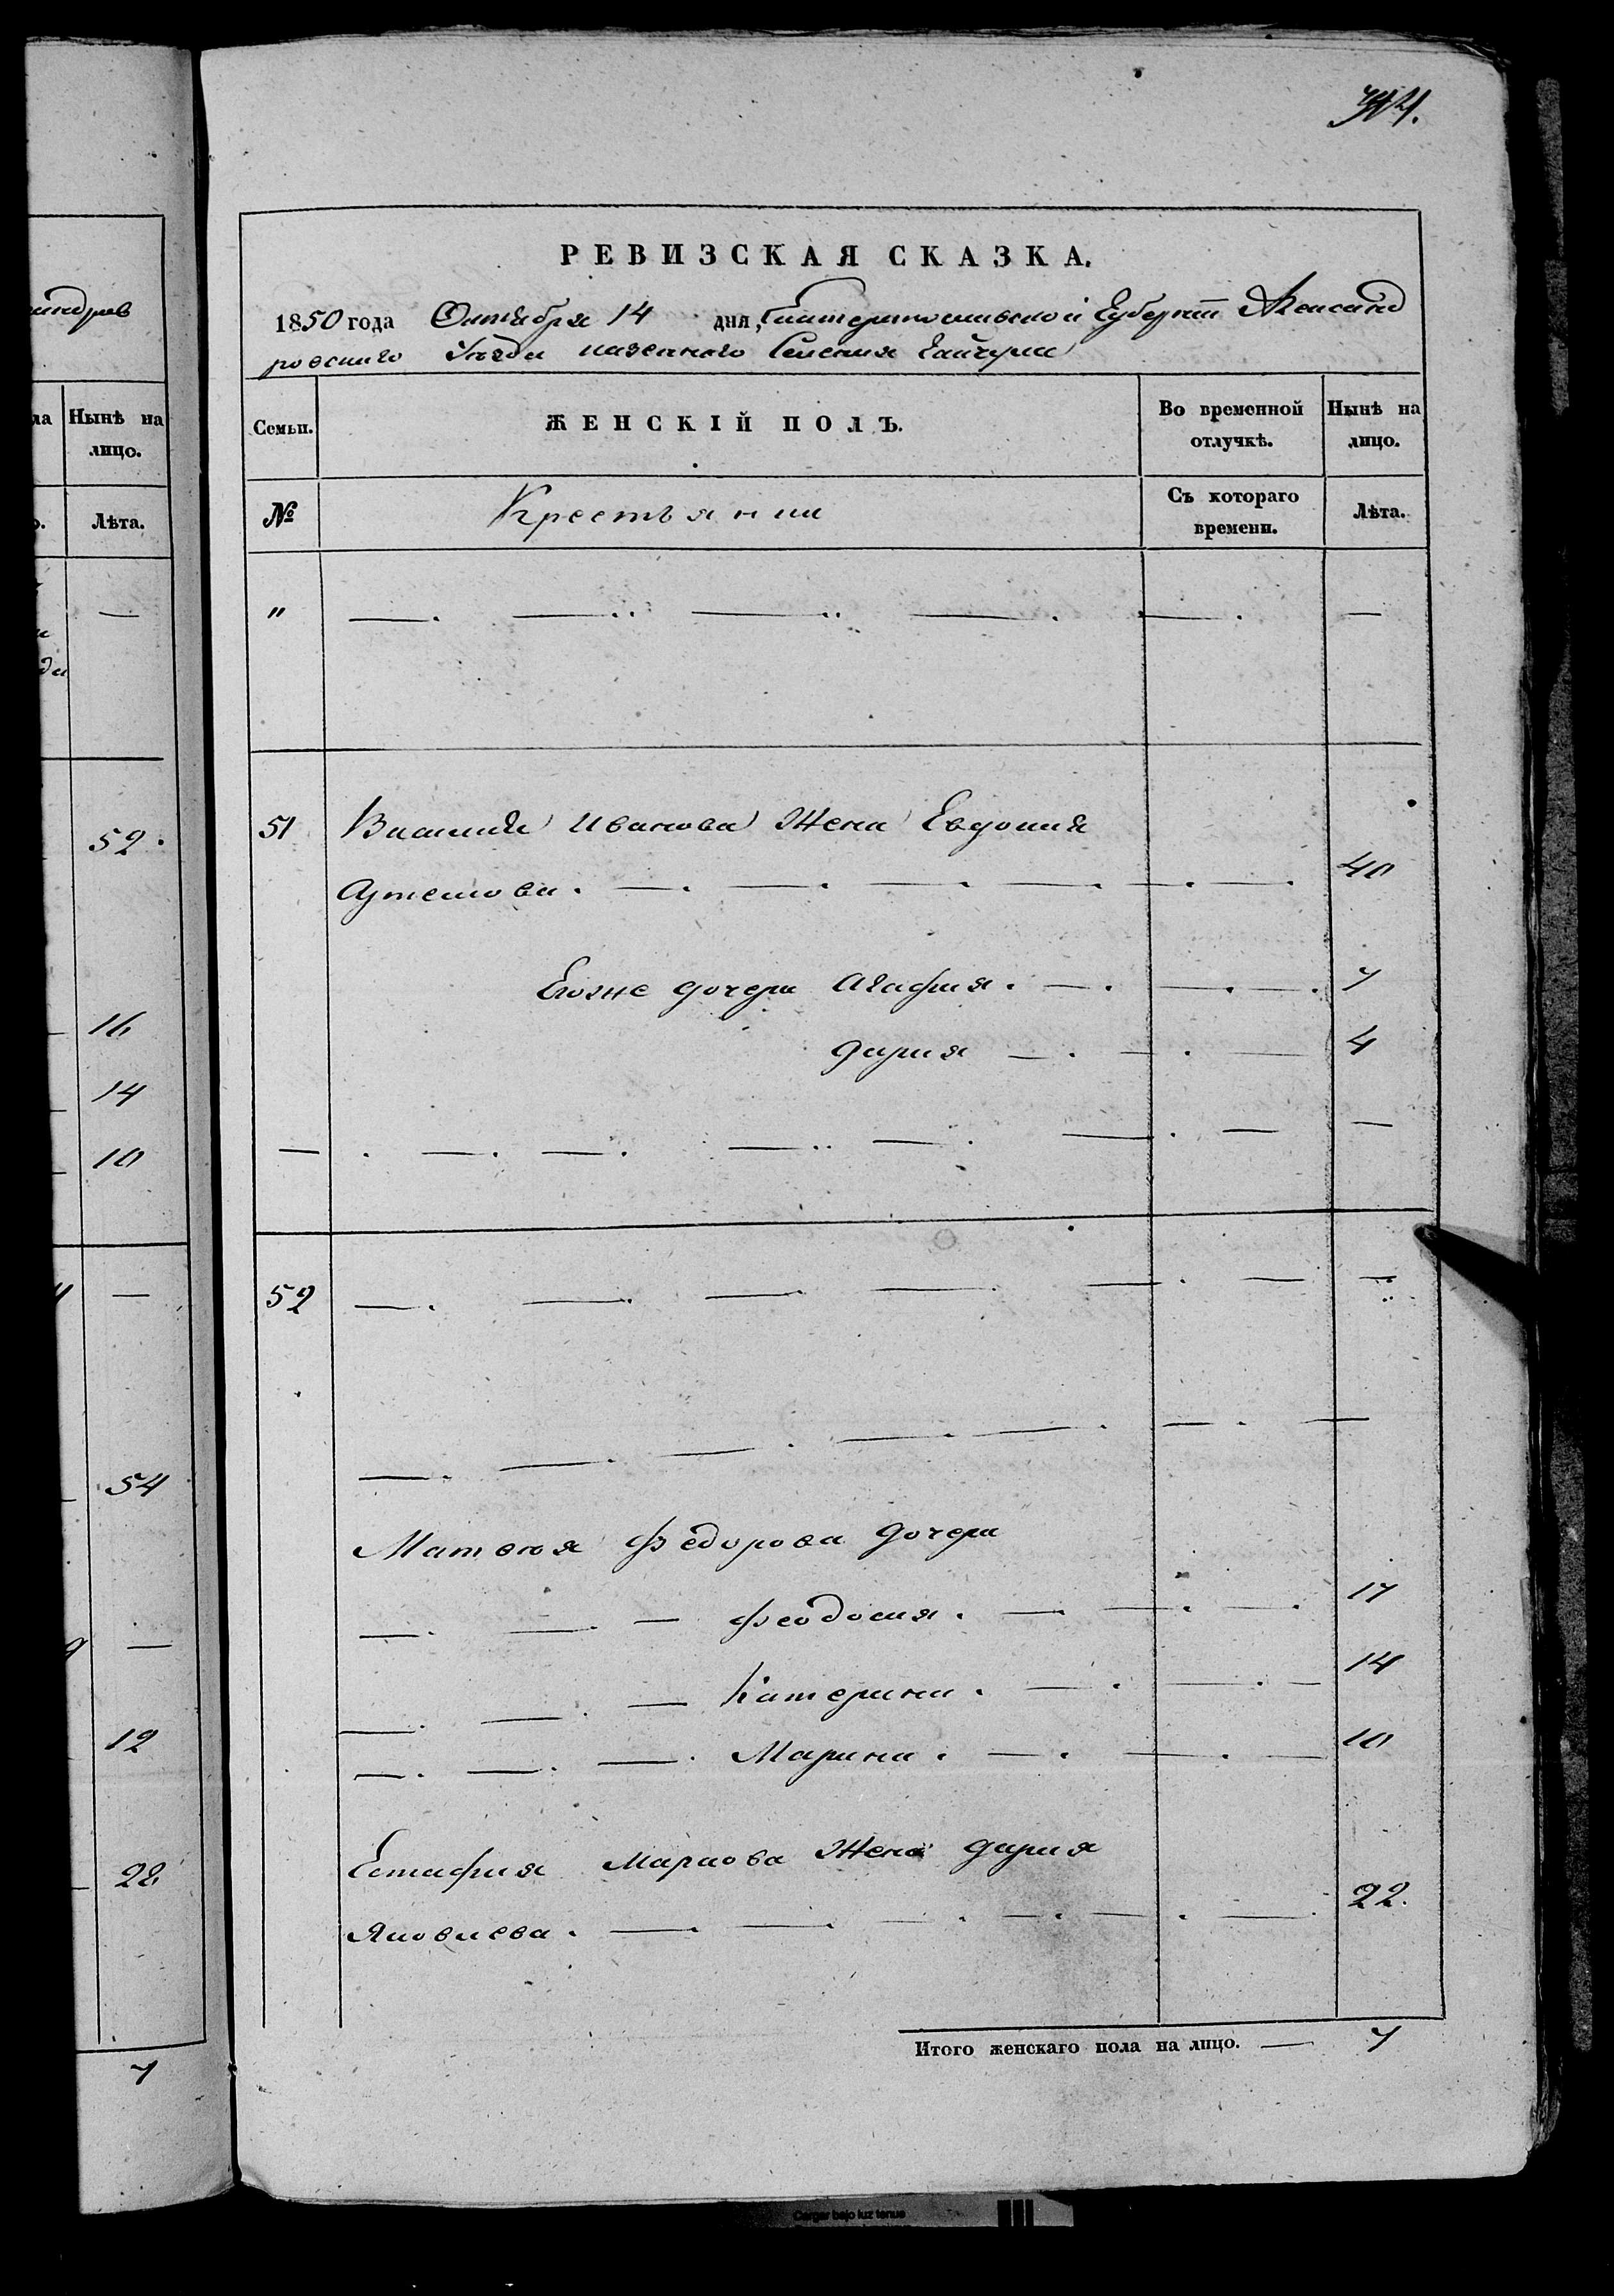 андров
ла Нынѣ на
лицо.
Лѣта.
52.
16
14
10
54
12
22
7
РЕВИЗСКАЯ СКАЗКА.
1850 года Октября 14 дня, Екатеринославской Губерніи Александ
ровскаго Уезда казенного Селения Гайчула
Семьи. ЖЕНСКІЙ ПОЛЪ. Во временной отлучкѣ. Нынѣ на лицо.
№ Крестьянии Съ котораго времени. Лѣта.
"
51 Василия Иванова Жена Евдокия
Артемова. 40
Егоже дочери Агафия. 7
Дария 4
52
Матвея Федорова дочери
Феодосия. 17
Катерина. 14
Марина. 10
Естафия Маркова Жена Дария
Яковлева. 22.
Итого женскаго пола на лицо. 7
Cargar bajo luz tenue